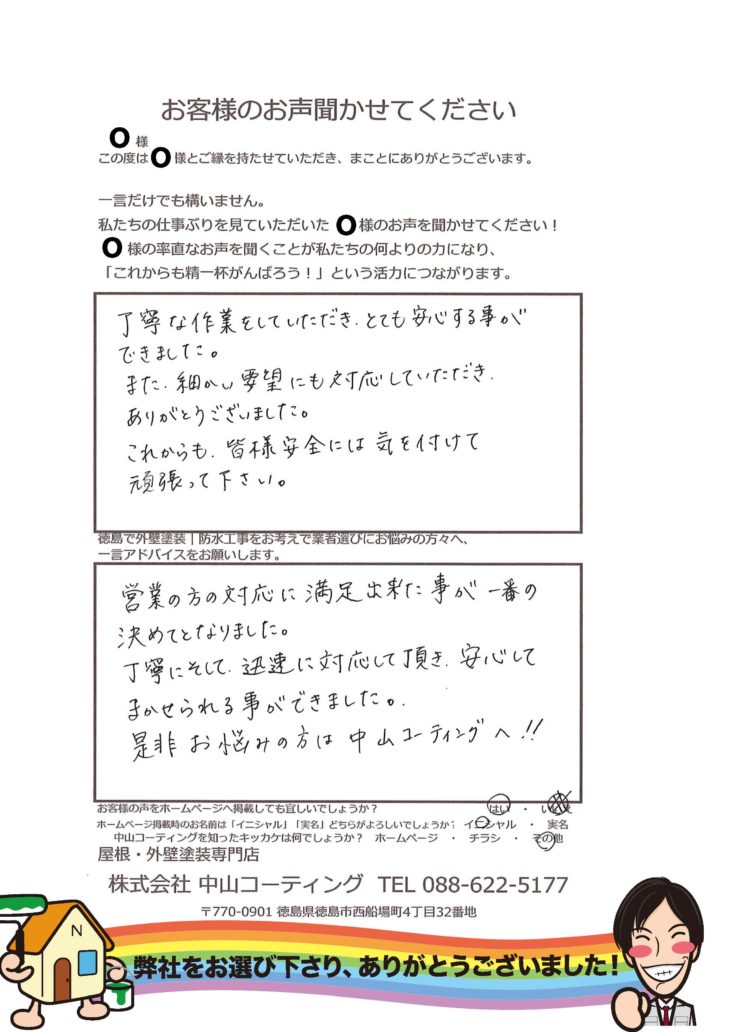 お客様のお声聞かせてください
O 様
この度は O 様とご縁を持たせていただき、まことにありがとうございます。
一言だけでも構いません。
私たちの仕事ぶりを見ていただいた O 様のお声を聞かせてください！
O 様の率直なお声を聞くことが私たちの何よりの力になり、
「これからも精一杯がんばろう！」という活力につながります。
丁寧な作業をしていただき、とても安心する事が
できました。
また、細かい要望にも対応していただき、
ありがとうございました。
これからも、皆様安全には気を付けて
頑張って下さい。
徳島で外壁塗装｜防水工事をお考えで業者選びにお悩みの方々へ、
一言アドバイスをお願いします。
営業の方の対応に満足出来た事が一番の
決めてとなりました。
丁寧にそして、迅速に対応して頂き、安心して
まかせられる事ができました。
是非お悩みの方は中山コーティングへ!!
お客様の声をホームページへ掲載しても宜しいでしょうか？ はい ・ いいえ
ホームページ掲載時のお名前は「イニシャル」「実名」どちらがよろしいでしょうか？ イニシャル ・ 実名
中山コーティングを知ったキッカケは何でしょうか？ ホームページ ・ チラシ ・ その他
屋根・外壁塗装専門店
株式会社 中山コーティング TEL 088-622-5177
〒770-0901 徳島県徳島市西船場町4丁目32番地
N
弊社をお選び下さり、ありがとうございました！